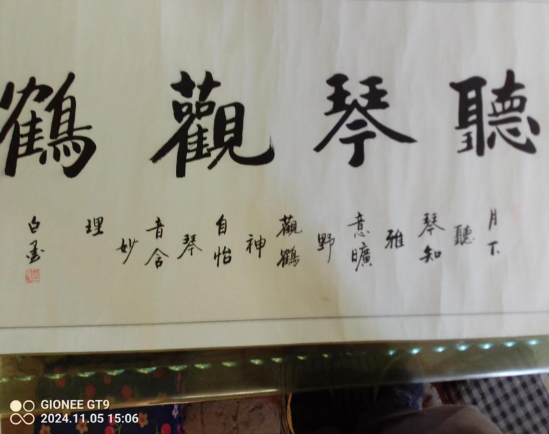 聽琴觀鶴
月下
聽
琴知
雅
意曠
野
觀鶴
神
自怡
琴
音含
妙
理
白墨
GIONEE GT9
2024.11.05 15:06